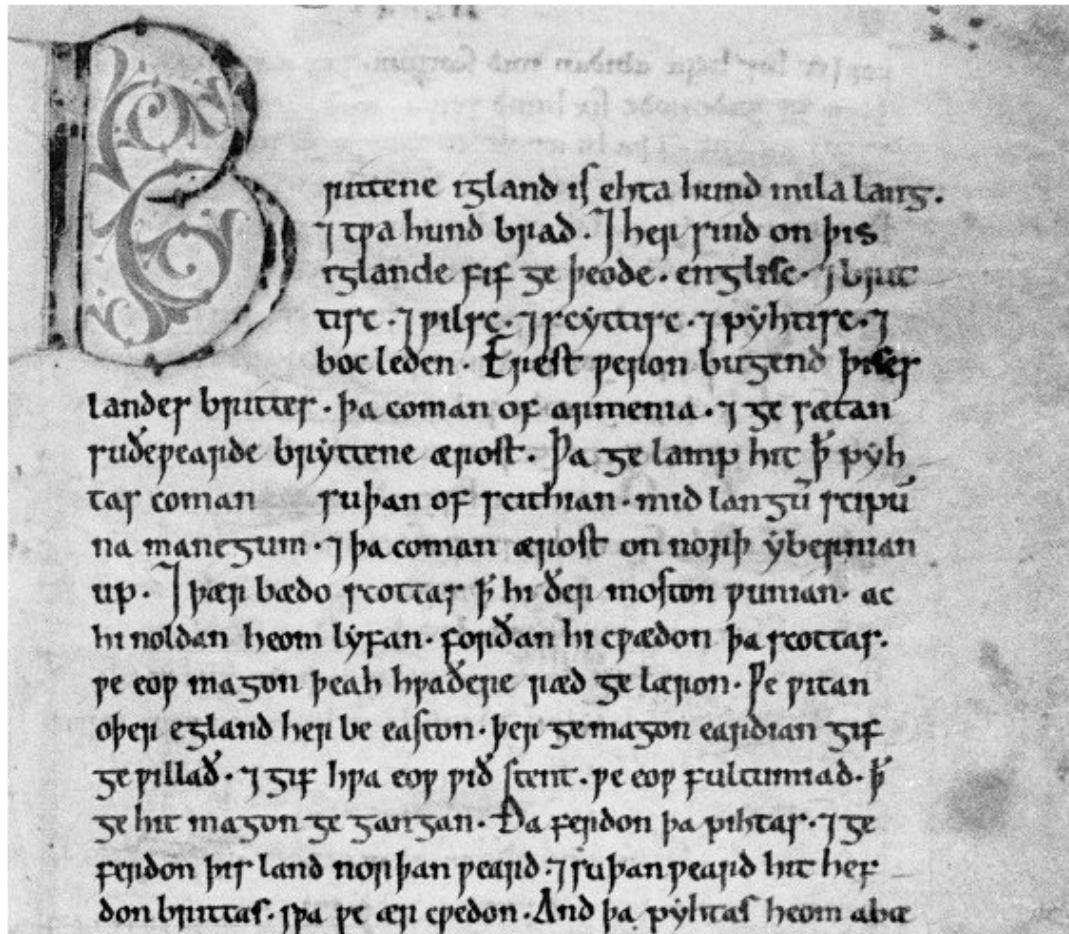 Brittene igland is ehta hund mila lang.
⁊ tƿa hund brad. ⁊ her sind on þis
iglande fif ge þeode. englisc. ⁊ brit
tisc. ⁊ ƿilsc. ⁊ scyttisc. ⁊ pyhtisc. ⁊
boc leden. Erest ƿeron bugend þises
landes brittes. þa coman of armenia. ⁊ ge sætan
suðeƿearde bryttene ærost. Þa ge lamp hit ꝥ pyh
tas coman suþan of scithian. mid langū scipū
na manegum. ⁊ þa coman ærost on norþ ybernian
up. ⁊ þær bædo scottas ꝥ hi ðer moston ƿunian. ac
hi noldan heom lyfan. forðan hi cƿædon þa scottas.
ƿe eoƿ magon þeah hƿaðere ræd ge læron. Ƿe ƿitan
oþer egland her be easton. þer ge magon eardian gif
ge ƿillað. ⁊ gif hƿa eoƿ ƿið stent. ƿe eoƿ fultumiad. ꝥ
ge hit magon ge gangan. Ða ferdon þa pihtas. ⁊ ge
ferdon þis land norþan ƿeard. ⁊ suþan ƿeard hit hef
don brittas. sƿa ƿe ær cƿedon. And þa pyhtas heom abæ